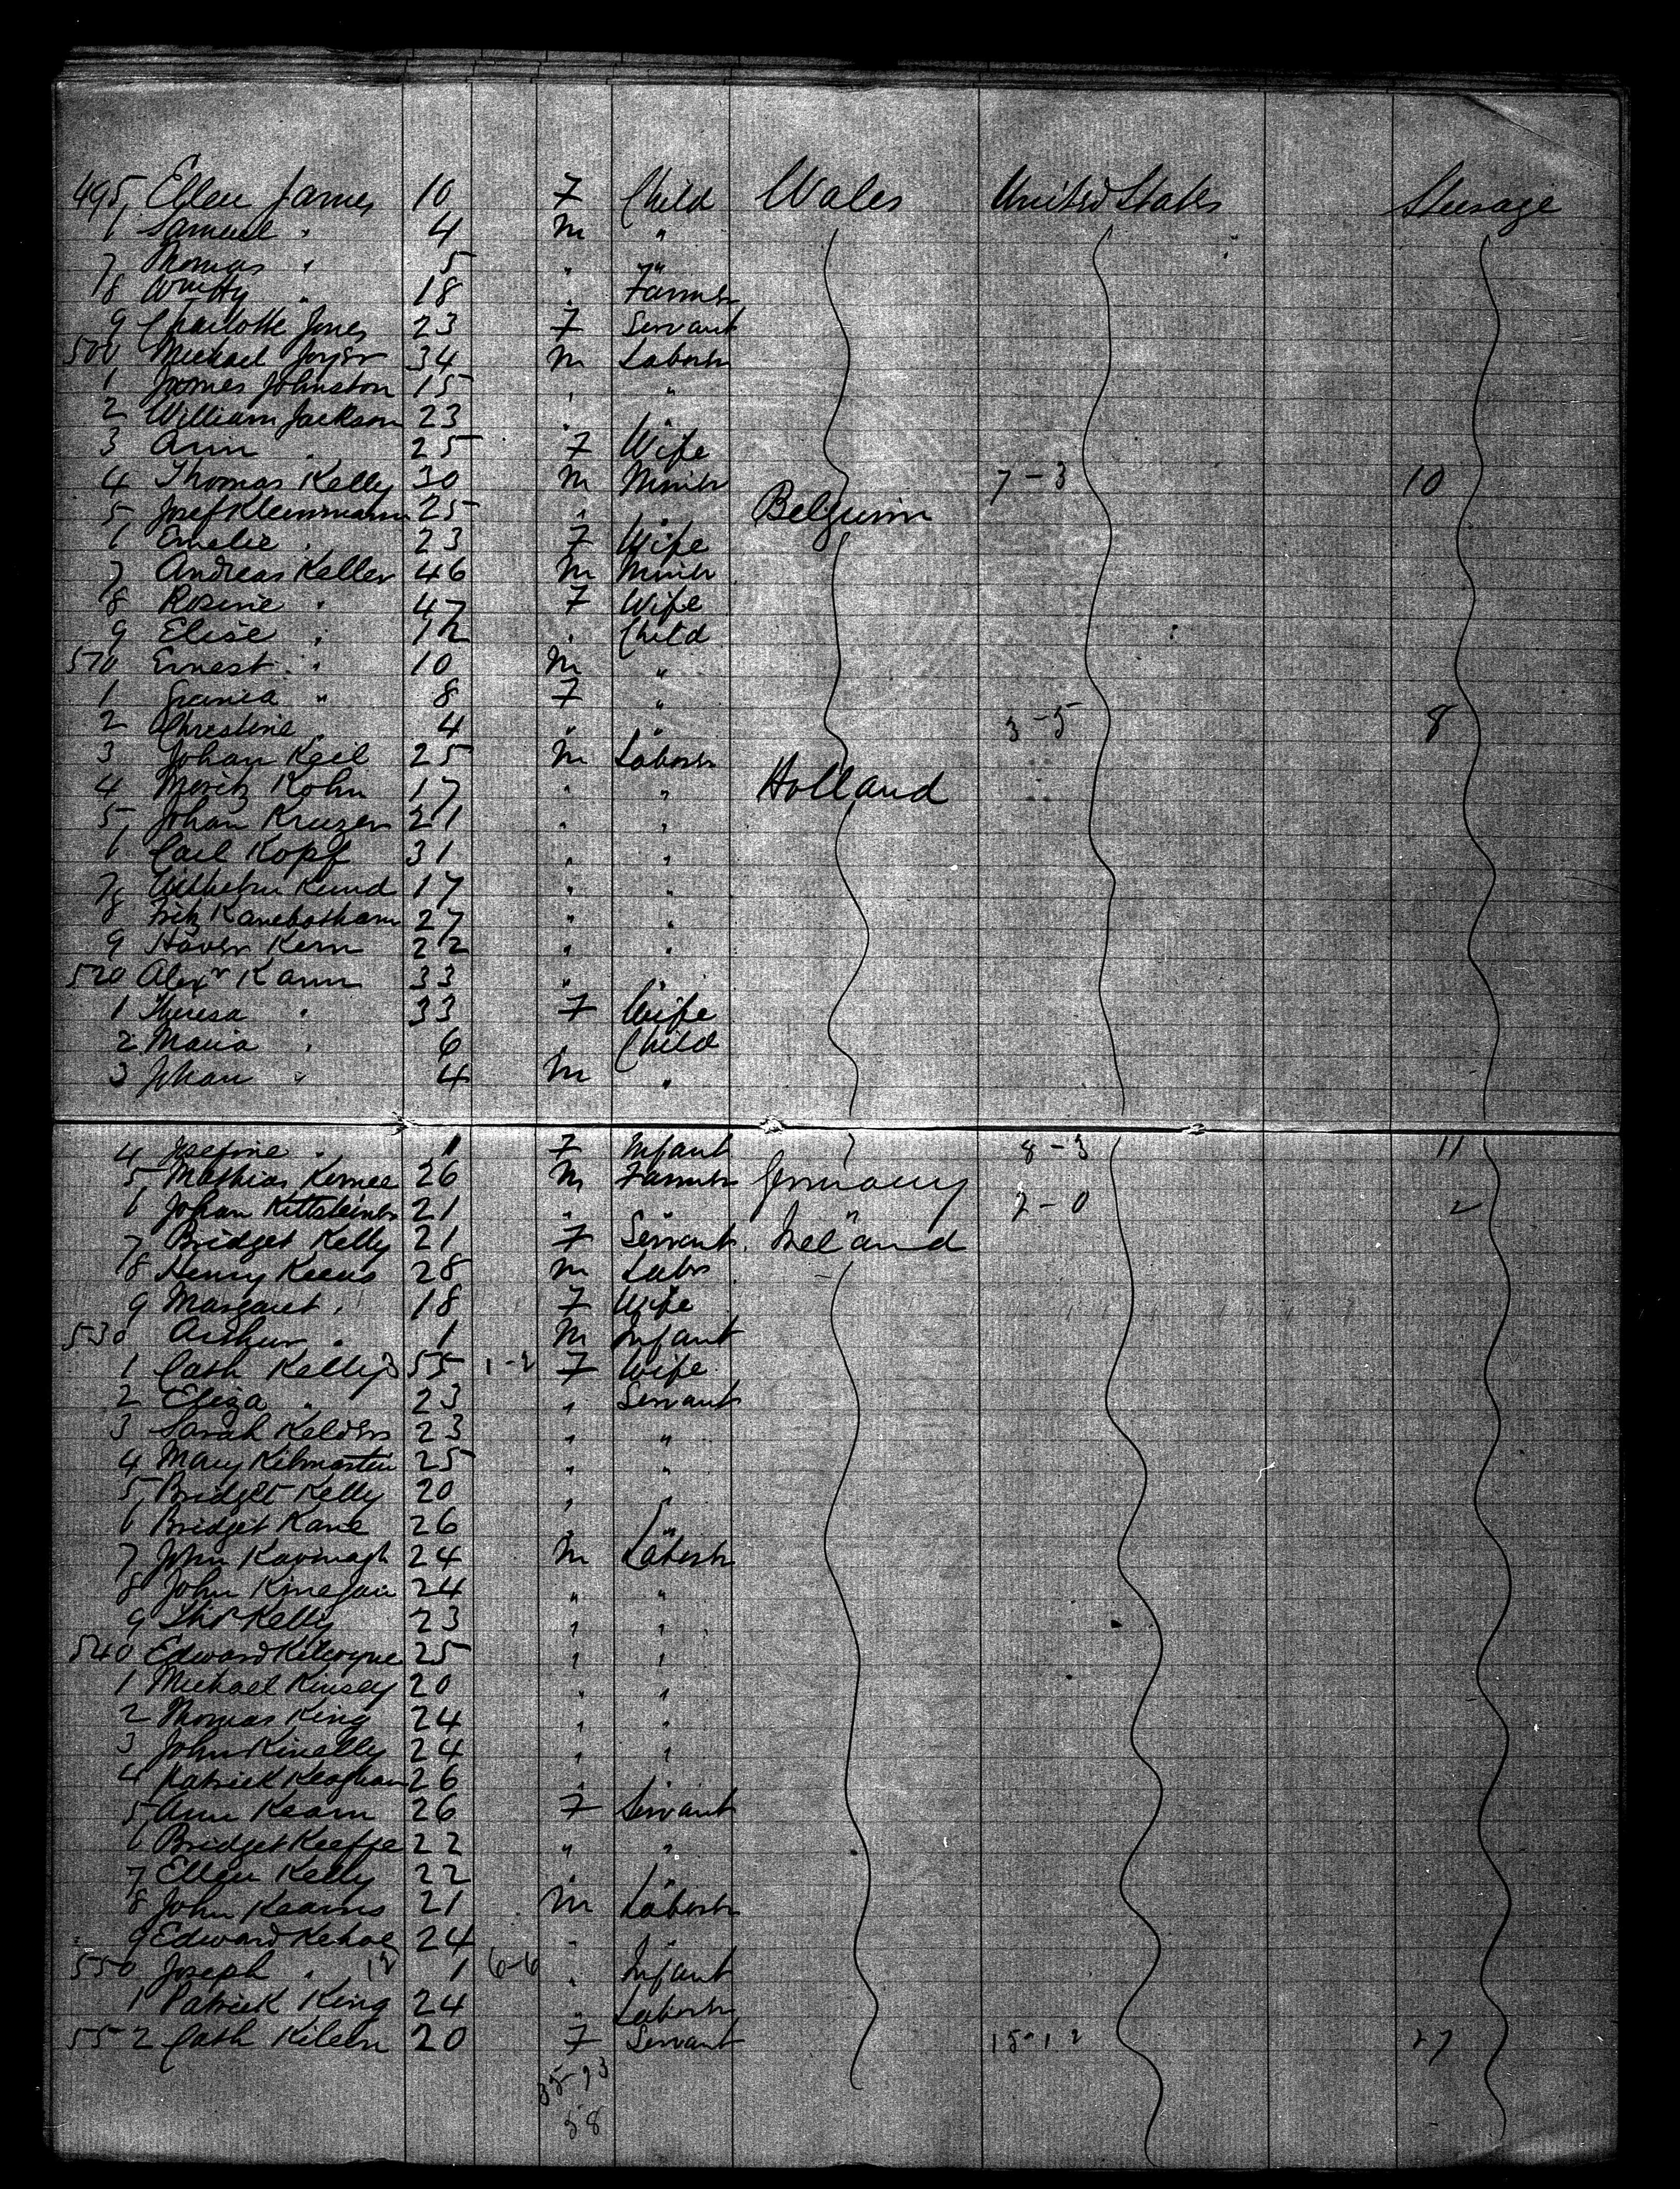 495 Ellen James 10 F Child Wales United States Steerage
6 Samuel " 4 M "
7 Thomas " 5 " "
8 Wm Hy " 18 " Farmer
9 Charlotte Jones 23 F Servant
500 Michael Joyer 34 M Laborer
1 James Johnston 15 " "
2 William Jackson 23 "
3 Ann " 25 F Wife
4 Thomas Kelly 30 M Miner 7-3 10
5 Josef Kleinmann 25 " " Belguim
6 Emelie " 23 F Wife
7 Andreas Keller 46 M Miner
8 Rosine " 47 F Wife
9 Elise " 12 " Child
510 Ernest " 10 M "
1 " 8 F "
2 Christine " 4 " " 3-5 8
3 Johan Keil 25 M Laborer
4 Moritz Kohn 17 " " Holland
5 Johan Kruzer 21 " "
6 Carl Kopf 31 " "
7 Wilhelm Kund 17 " "
8 Fritz Kanebotham 27 " "
9 Kern 22 " "
520 Alexr Kann 33 " "
1 Theresa " 33 F Wife
2 Maria " 6 " Child
3 Johan " 4 M "
4 Josefine " 1 F Infant 8-3 11
5 Mathias 26 M Farmer Germany
6 Johan Kittsteiner 21 " " " 2-0 2
7 Bridget Kelly 21 F Servant Ireland
8 Henry Keens 28 M Labr
9 Margaret " 18 F Wife
530 Arthur " 1 M Infant
1 Cath Kelly 55 1-2 F Wife
2 Eliza " 23 " Servant
3 Sarah Kelder 23 " "
4 Mary Kilmartin 25 " "
5 Bridget Kelly 20 " "
6 Bridget Kane 26 " "
7 John Kavinagh 24 M Laborer
8 John Kinegan 24 " "
9 Thos Kelly 23 " "
540 Edward Kilcoyne 25 " "
1 Michael Kinsey 20 " "
2 Thomas King 24 " "
3 John Kinelly 24 " "
4 Patrick Keoghan 26 " "
5 Ann Kearn 26 F Servant
6 Bridget Keeffe 22 " "
7 Ellen Kelly 22 " "
8 John Kearns 21 M Laborer
9 Edward Kehoe 24 " "
550 Joseph " 12 1 6-6 " Infant
1 Patrick King 24 " Laborer
552 Cath Kileen 20 F Servant 15-12 27
35-23
58